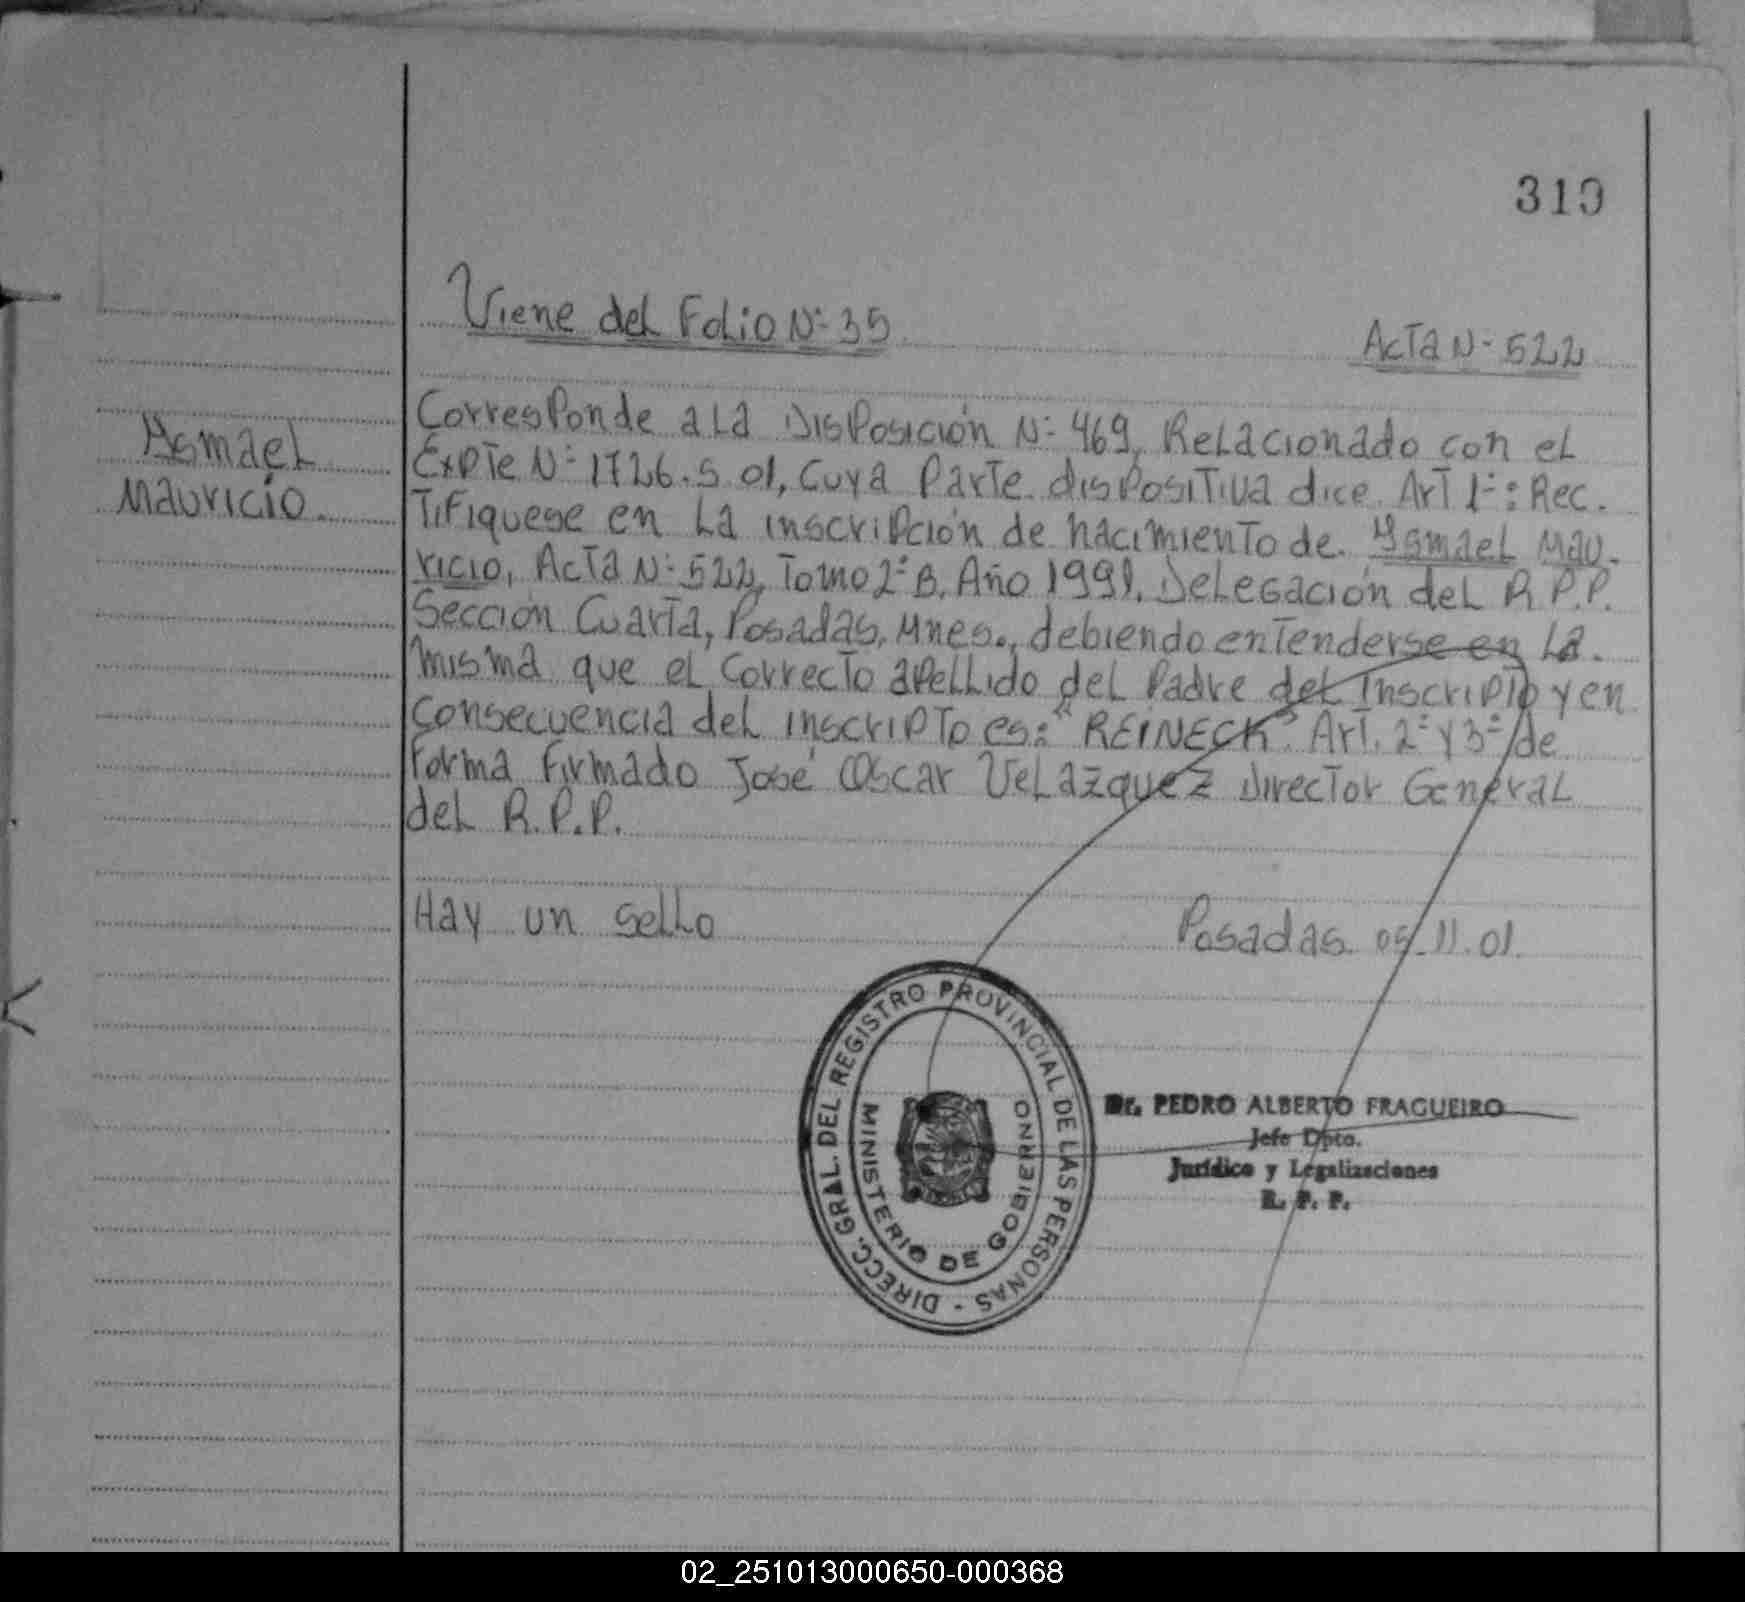 310
Viene del Folio Nº 35
Acta Nº 522
Ysmael
Mauricio.
Corresponde a la Disposición Nº 469, Relacionado con el
Expte Nº 1726.S.01, Cuya Parte dispositiva dice Art 1º: Rec.
tifiquese en la inscripción de nacimiento de Ysmael Mau-
ricio, Acta Nº 522, Tomo 2º B, Año 1991, Delegación del R.P.P.
Sección Cuarta, Posadas, Mnes., debiendo entenderse en la
misma que el correcto apellido del Padre del inscripto y en
consecuencia del inscripto es: "REINECK". Art. 2º y 3º de
forma firmado José Oscar Velazquez Director General
del R.P.P.
Hay un sello
Posadas 05.11.01.
DIRECC. GRAL. DEL REGISTRO PROVINCIAL DE LAS PERSONAS -
MINISTERIO DE GOBIERNO
Dr. PEDRO ALBERTO FRAGUEIRO
Jefe Dpto.
Jurídico y Legalizaciones
R. P. P.
02_251013000650-000368